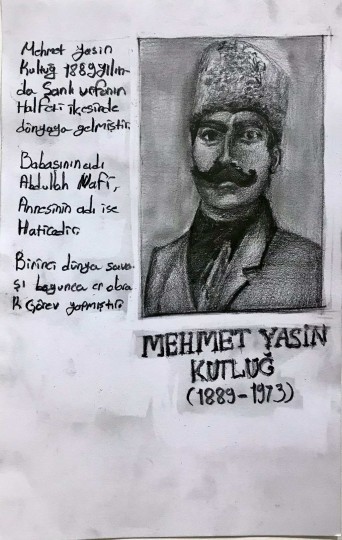 Mehmet Yasin
Kutluğ 1889 yılın-
da Şanlı urfanın
Halfeti ilçesinde
dünyaya gelmiştir.
Babasının adı
Abdullah Nafi,
Annesinin adı ise
Haticedir.
Birinci dünya sava-
şı boyunca er olara
k Görev yapmıştır.
MEHMET YASİN
KUTLUĞ
(1889-1973)